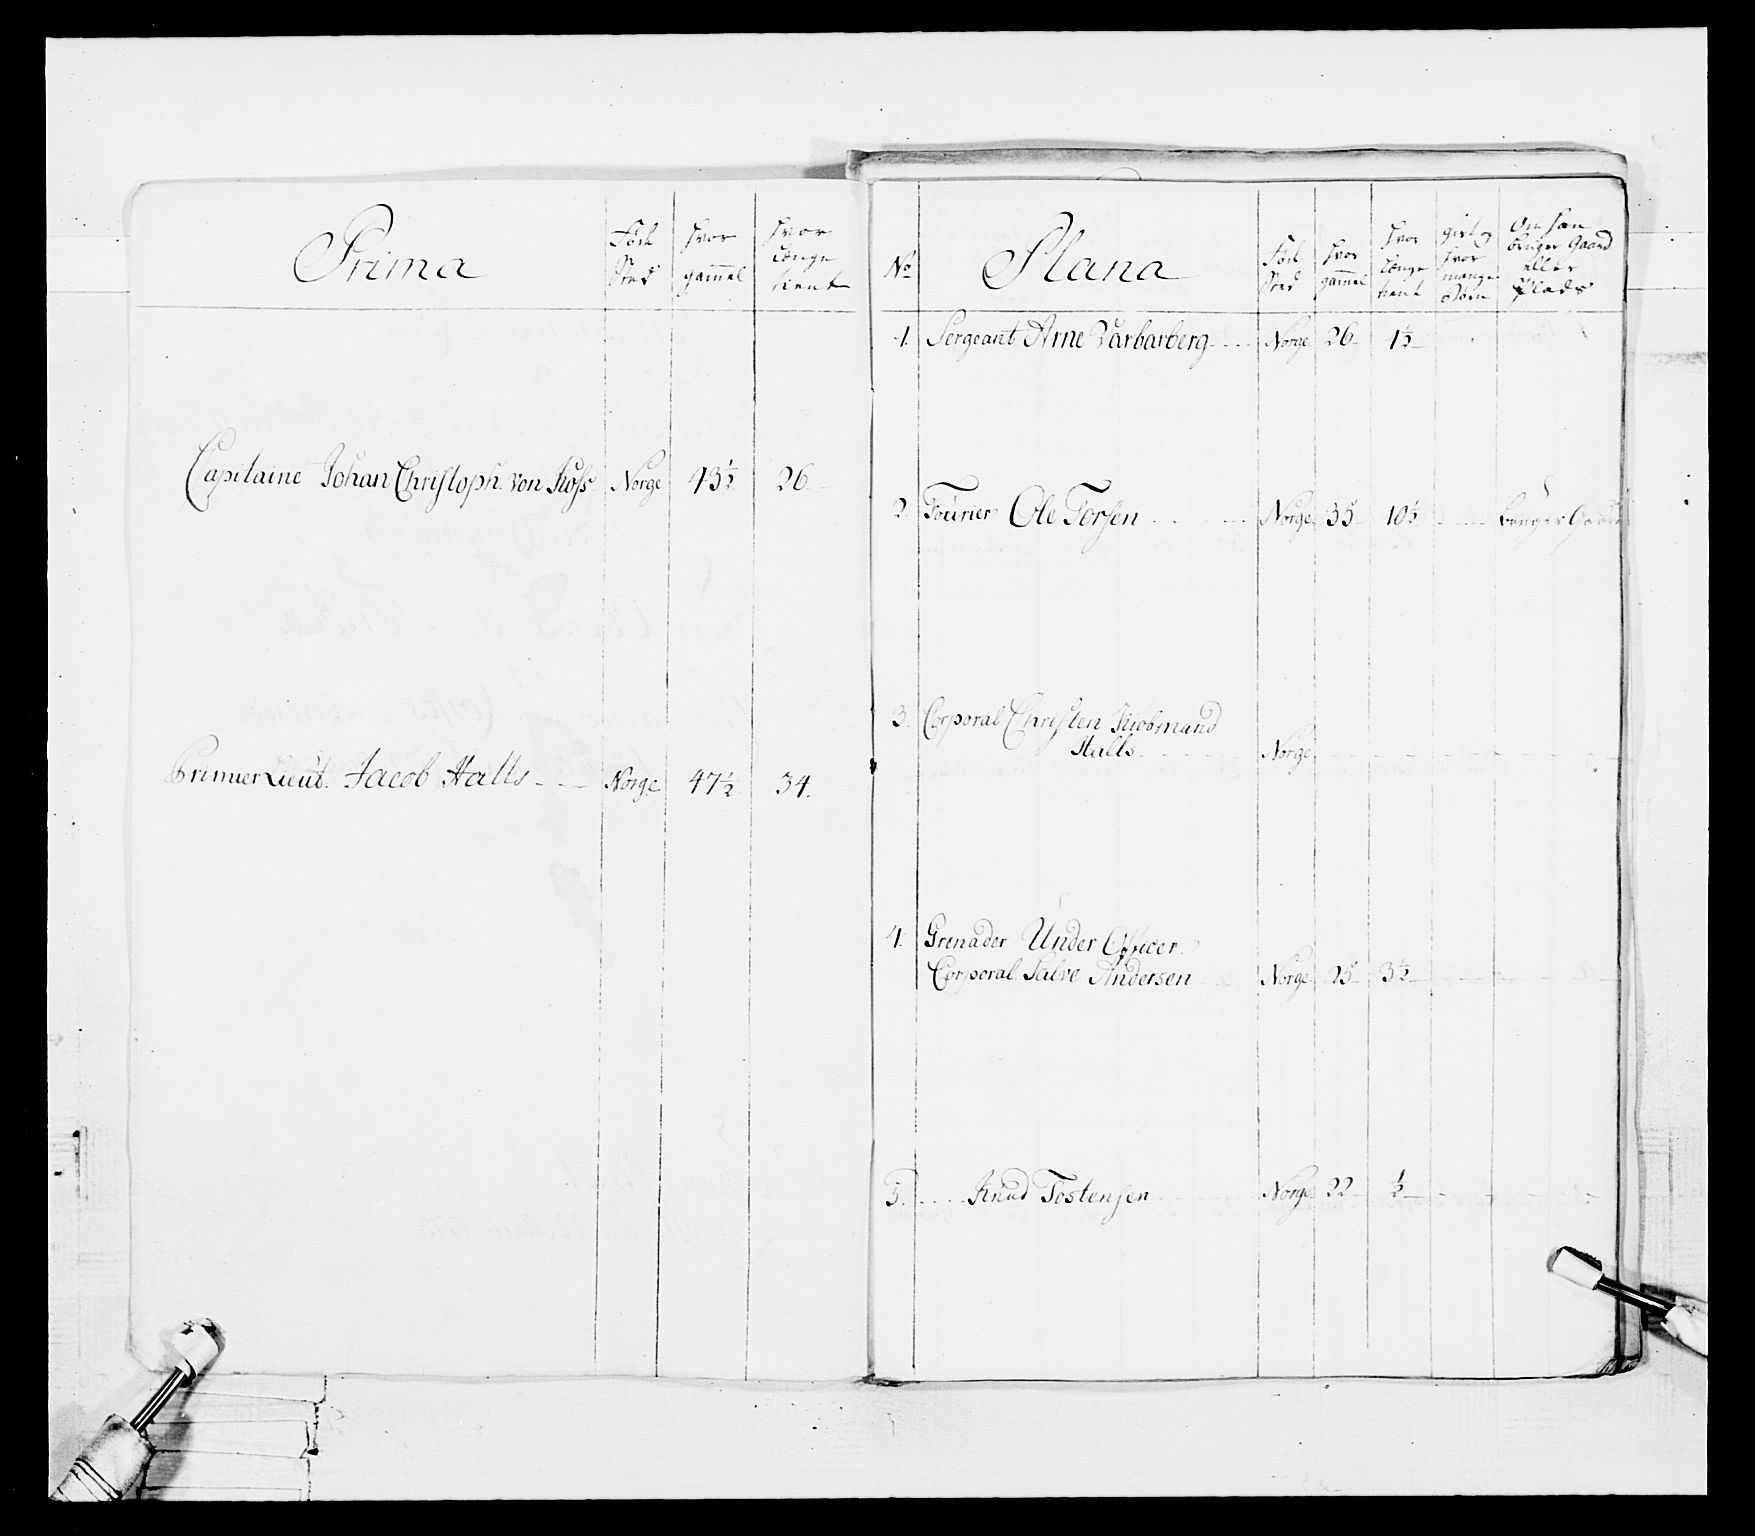 Prima
Fød Sted
hvor gammel
hvor længe tient
Capitaine Johan Christoph von Koss Norge 43½ 26
Primier Lieut. Jacob Halls Norge 47½ 34.
No
Plana
Fød Sted
hvor gammel
hvor længe tient
gift og hvor mange Børn
Om han bruger Gaard eller Plads
1. Sergeant Arne Norge 26
2. Fourier Ole Torsen Norge 35 10½ bruger Gaard
3. Corporal Christen
Halls Norge
4. Grenader Under Officer
Corporal Salve Andersen Norge 25 3½
5. Knud Tostensen Norge 22 ½